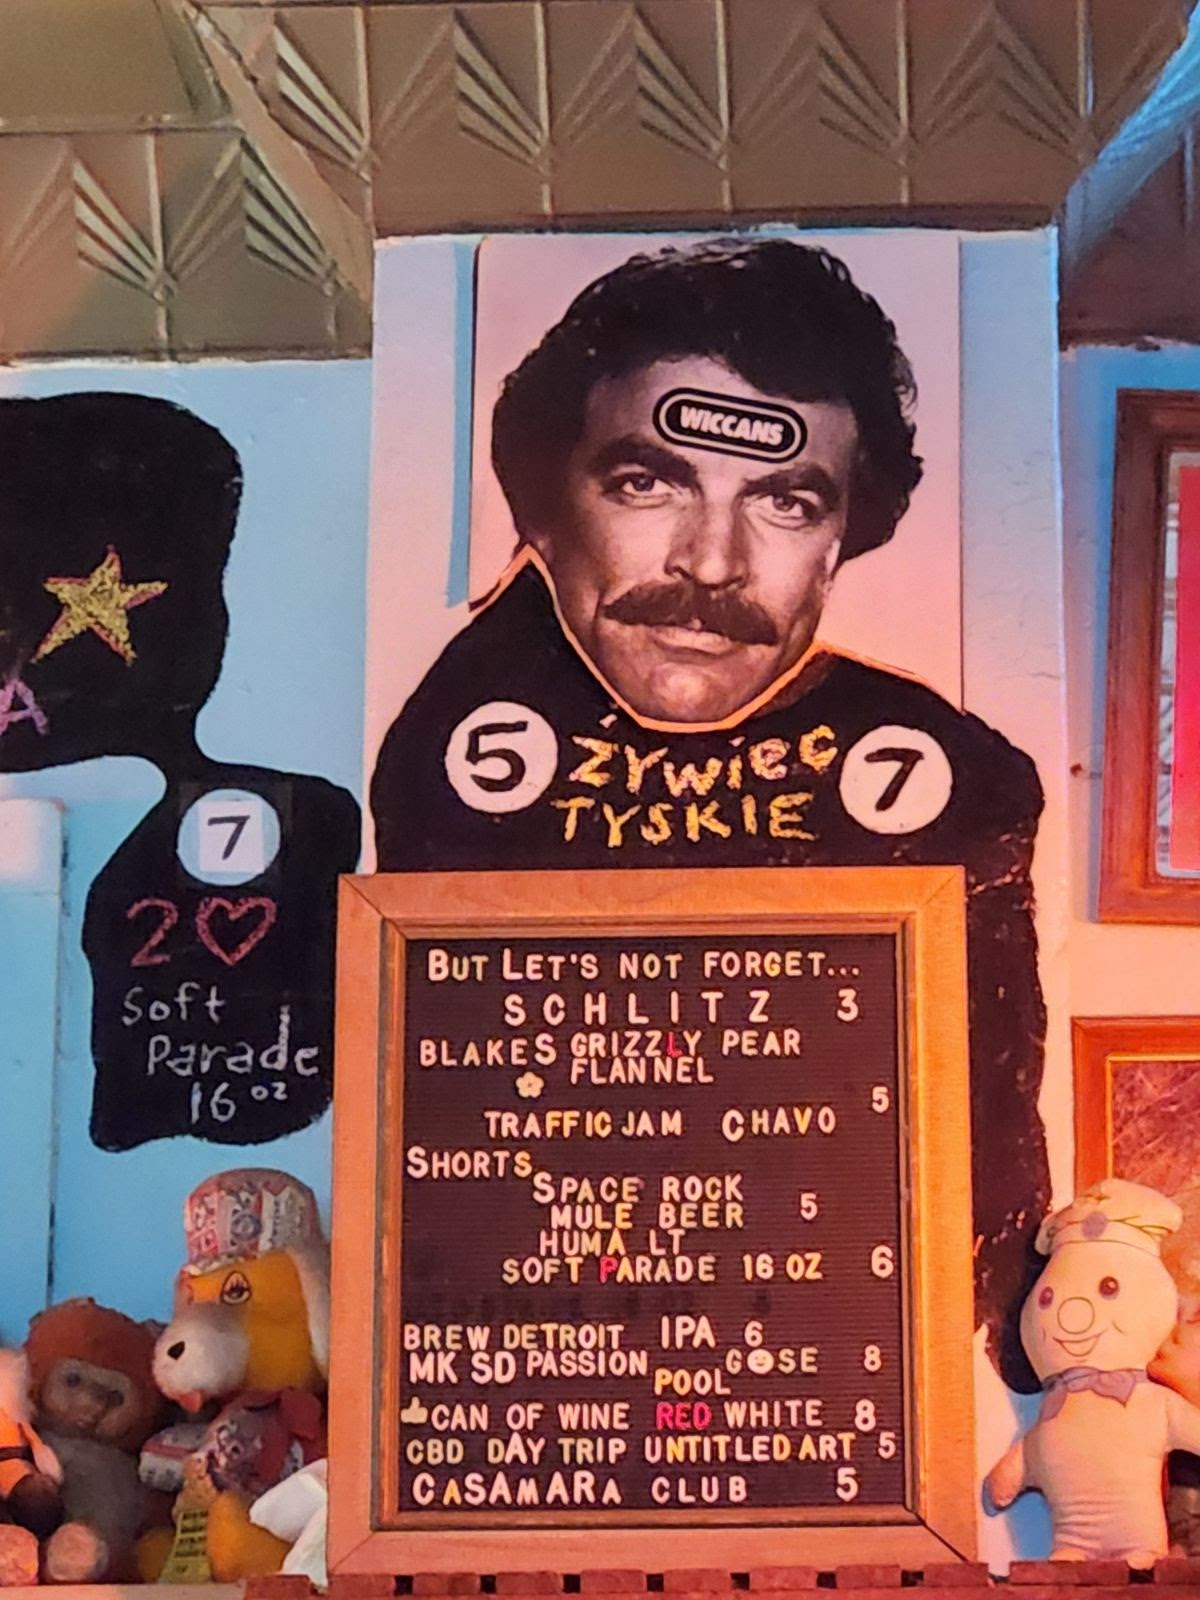 WICCANS
5 ŻYwieC 7
TYSKIE
A
7
2♡
Soft
Parade
16 oz
BUT LET'S NOT FORGET...
SCHLITZ 3
BLAKES GRIZZLY PEAR
FLANNEL
5
TRAFFIC JAM CHAVO
SHORTS
SPACE ROCK
MULE BEER 5
HUMA LT
SOFT PARADE 16 OZ 6
BREW DETROIT IPA 6
MK SD PASSION GOSE 8
POOL
👍CAN OF WINE RED WHITE 8
CBD DAY TRIP UNTITLED ART 5
CASAMARA CLUB 5